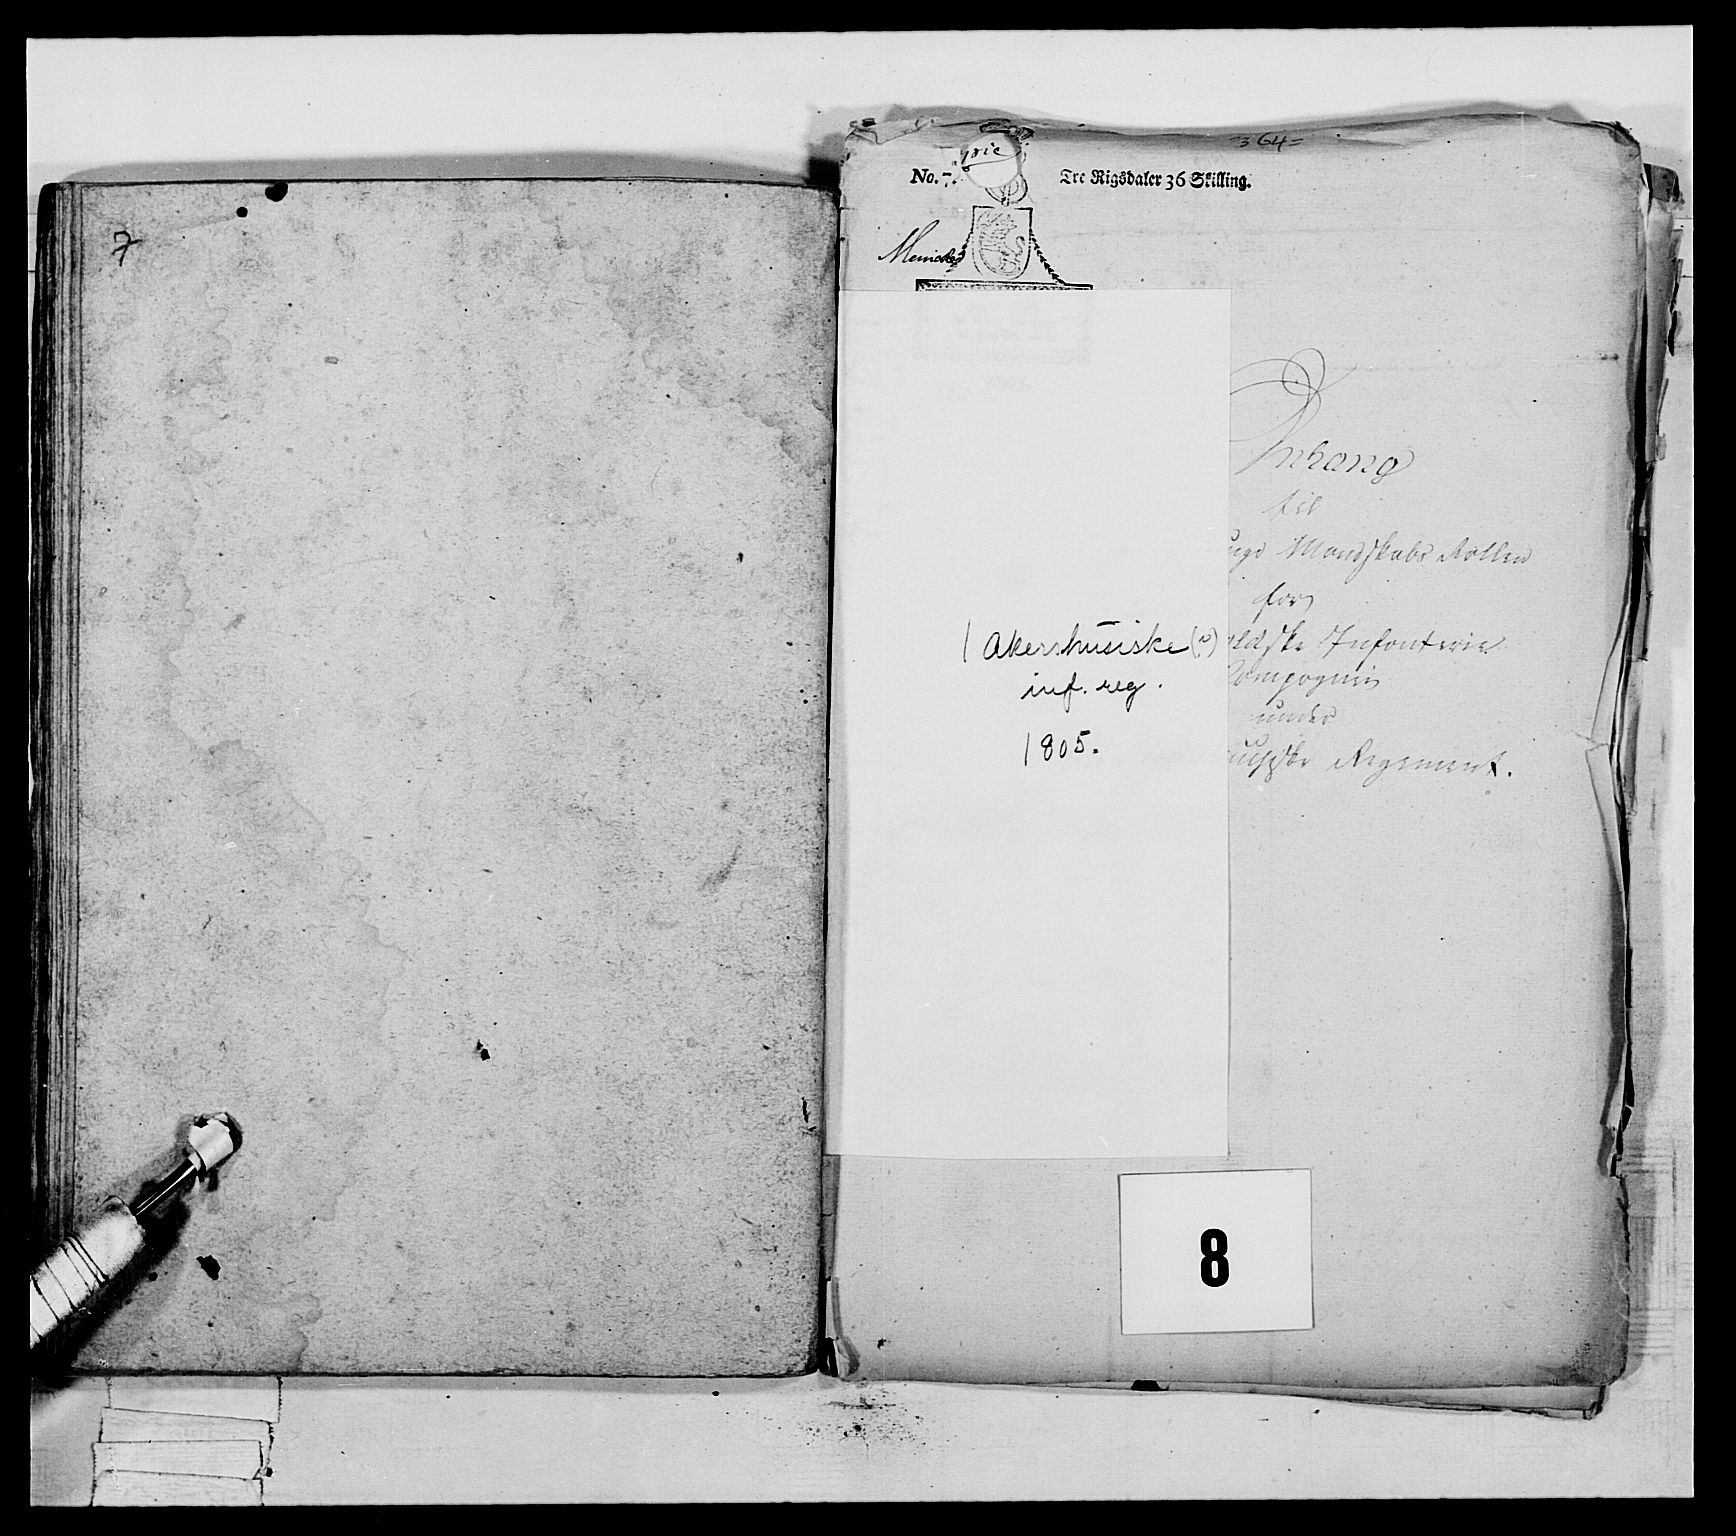 7
364=
No. 7.
Tre Rigsdaler 36 Skilling.
Anhang
til
unge Mandskabs Rollen
for
ldske Infanterie
Compagnie
under
huusske Regiment.
1 Akershusiske (?)
inf. reg.
1805.
8